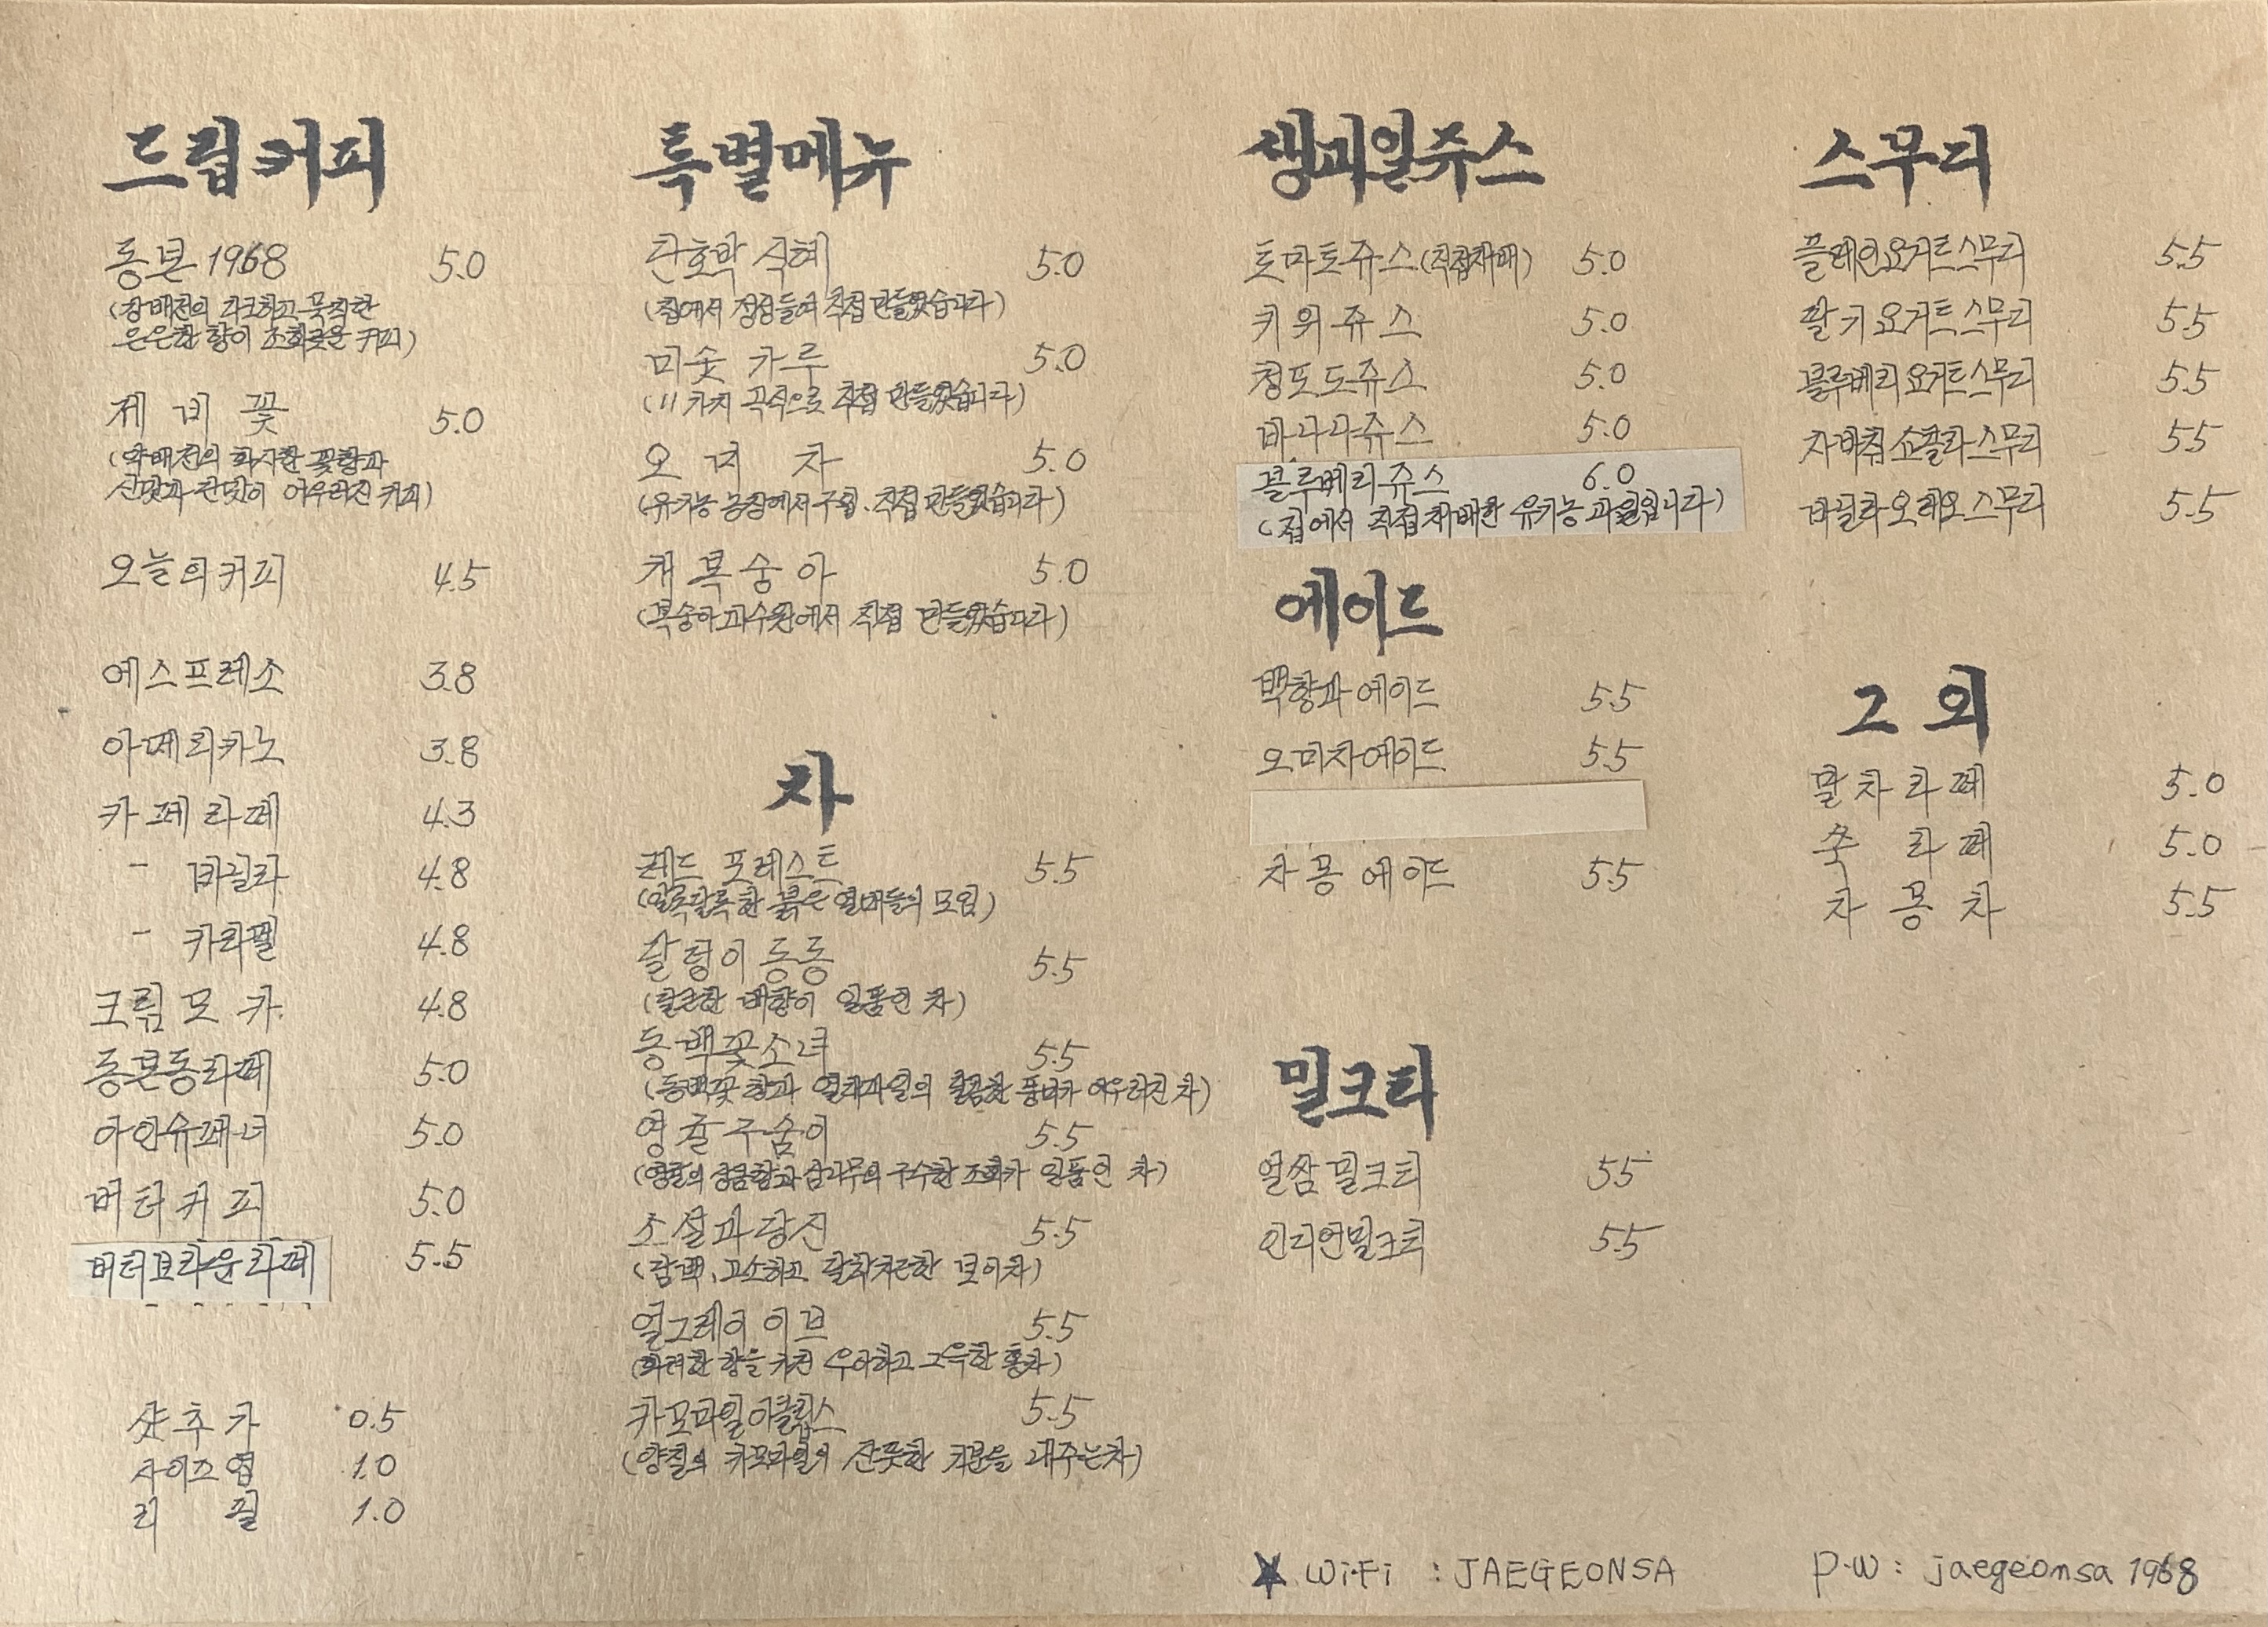 드립커피
동본 1968 5.0
(강배전의 다크하고 묵직한
은은한 향이 조화로운 커피)
제비꽃 5.0
(약배전의 화사한 꽃향과
신맛과 단맛이 어우러진 커피)
오늘의커피 4.5
에스프레소 3.8
아메리카노 3.8
카페라떼 4.3
- 바닐라 4.8
- 카라멜 4.8
크림모카 4.8
동본동라떼 5.0
아인슈페너 5.0
버터커피 5.0
버터브라운라떼 5.5
샷추가 0.5
사이즈업 1.0
리필 1.0
특별메뉴
단호박 식혜 5.0
(집에서 정성들여 직접 만들었습니다)
미숫가루 5.0
(11가지 곡식으로 직접 만들었습니다)
오미차 5.0
(유기농 농장에서 구입, 직접 만들었습니다)
캐복숭아 5.0
(복숭아과수원에서 직접 만들었습니다)
차
레드 포레스트 5.5
(알록달록한 붉은 열매들의 모임)
달텅이 동동 5.5
(달큰한 배향이 일품인 차)
동백꽃소녀 5.5
(동백꽃 향과 열대과일의 달콤한 풍미가 어우러진 차)
영귤구숨이 5.5
(영귤의 상큼함과 삼나무의 구수한 조화가 일품인 차)
소설과당신 5.5
(담백, 고소하고 달착지근한 보이차)
얼그레이 이브 5.5
(화려한 향을 가진 우아하고 그윽한 홍차)
카모마일이클립스 5.5
(양질의 카모마일의 산뜻한 기분을 내주는차)
생과일쥬스
토마토쥬스(직접재배) 5.0
키위쥬스 5.0
청포도쥬스 5.0
바나나쥬스 5.0
블루베리쥬스 6.0
(집에서 직접재배한 유기농과일입니다)
에이드
백향과에이드 5.5
오미자에이드 5.5
자몽에이드 5.5
밀크티
얼쌈밀크티 5.5
인디언밀크티 5.5
스무디
플레인요거트스무디 5.5
딸기요거트스무디 5.5
블루베리요거트스무디 5.5
자바칩쇼콜라스무디 5.5
바닐라오레오스무디 5.5
그 외
말차라떼 5.0
쑥라떼 5.0
자몽차 5.5
★ WiFi : JAEGEONSA P.W : jaegeonsa 1968